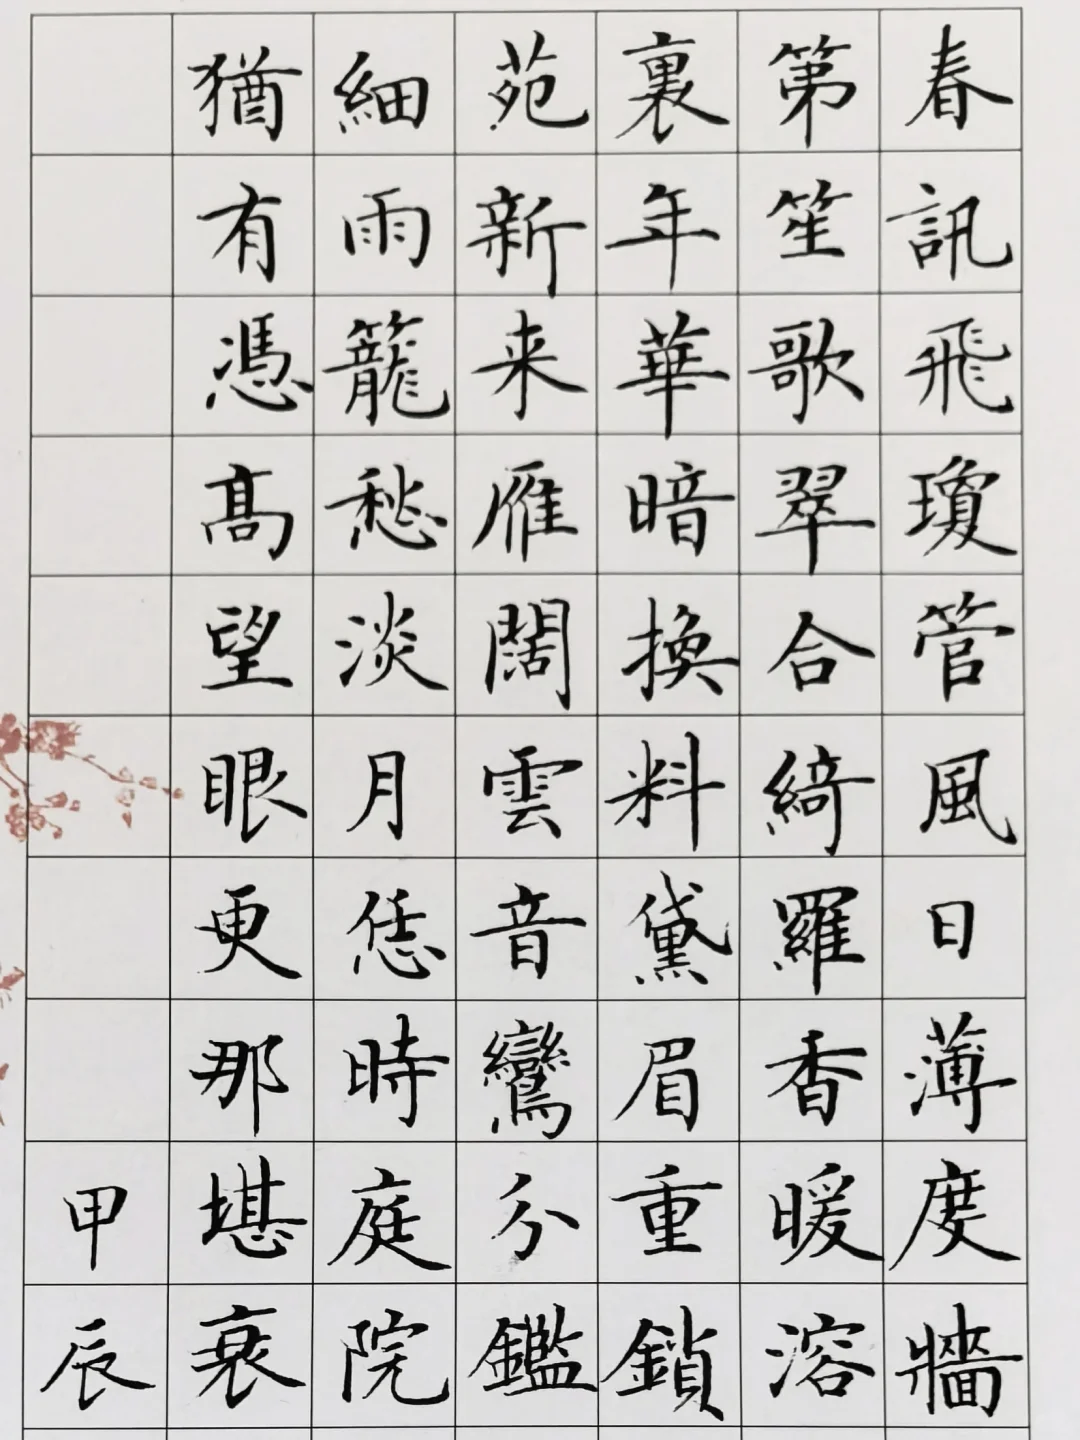 春訊飛瓊管風日薄度牆
第笙歌翠合綺羅香暖溶
裏年華暗換料黛眉重鎖
苑新来雁闊雲音鸞分鑑
細雨籠愁淡月恁時庭院
猶有憑高望眼更那堪衰
甲辰